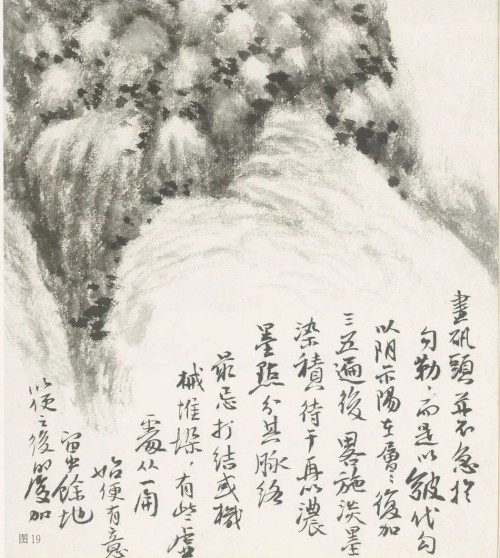 畫矾頭并不急於
勾勒,而是以皴代勾
以阴示陽在層〻復加
三五遍後畧施淡墨
染積待干再以濃
墨點分其脉络
最忌打结或機
械堆垛,有些虚
靈从一開
始便有意
留出餘地
以便之後的復加
图19